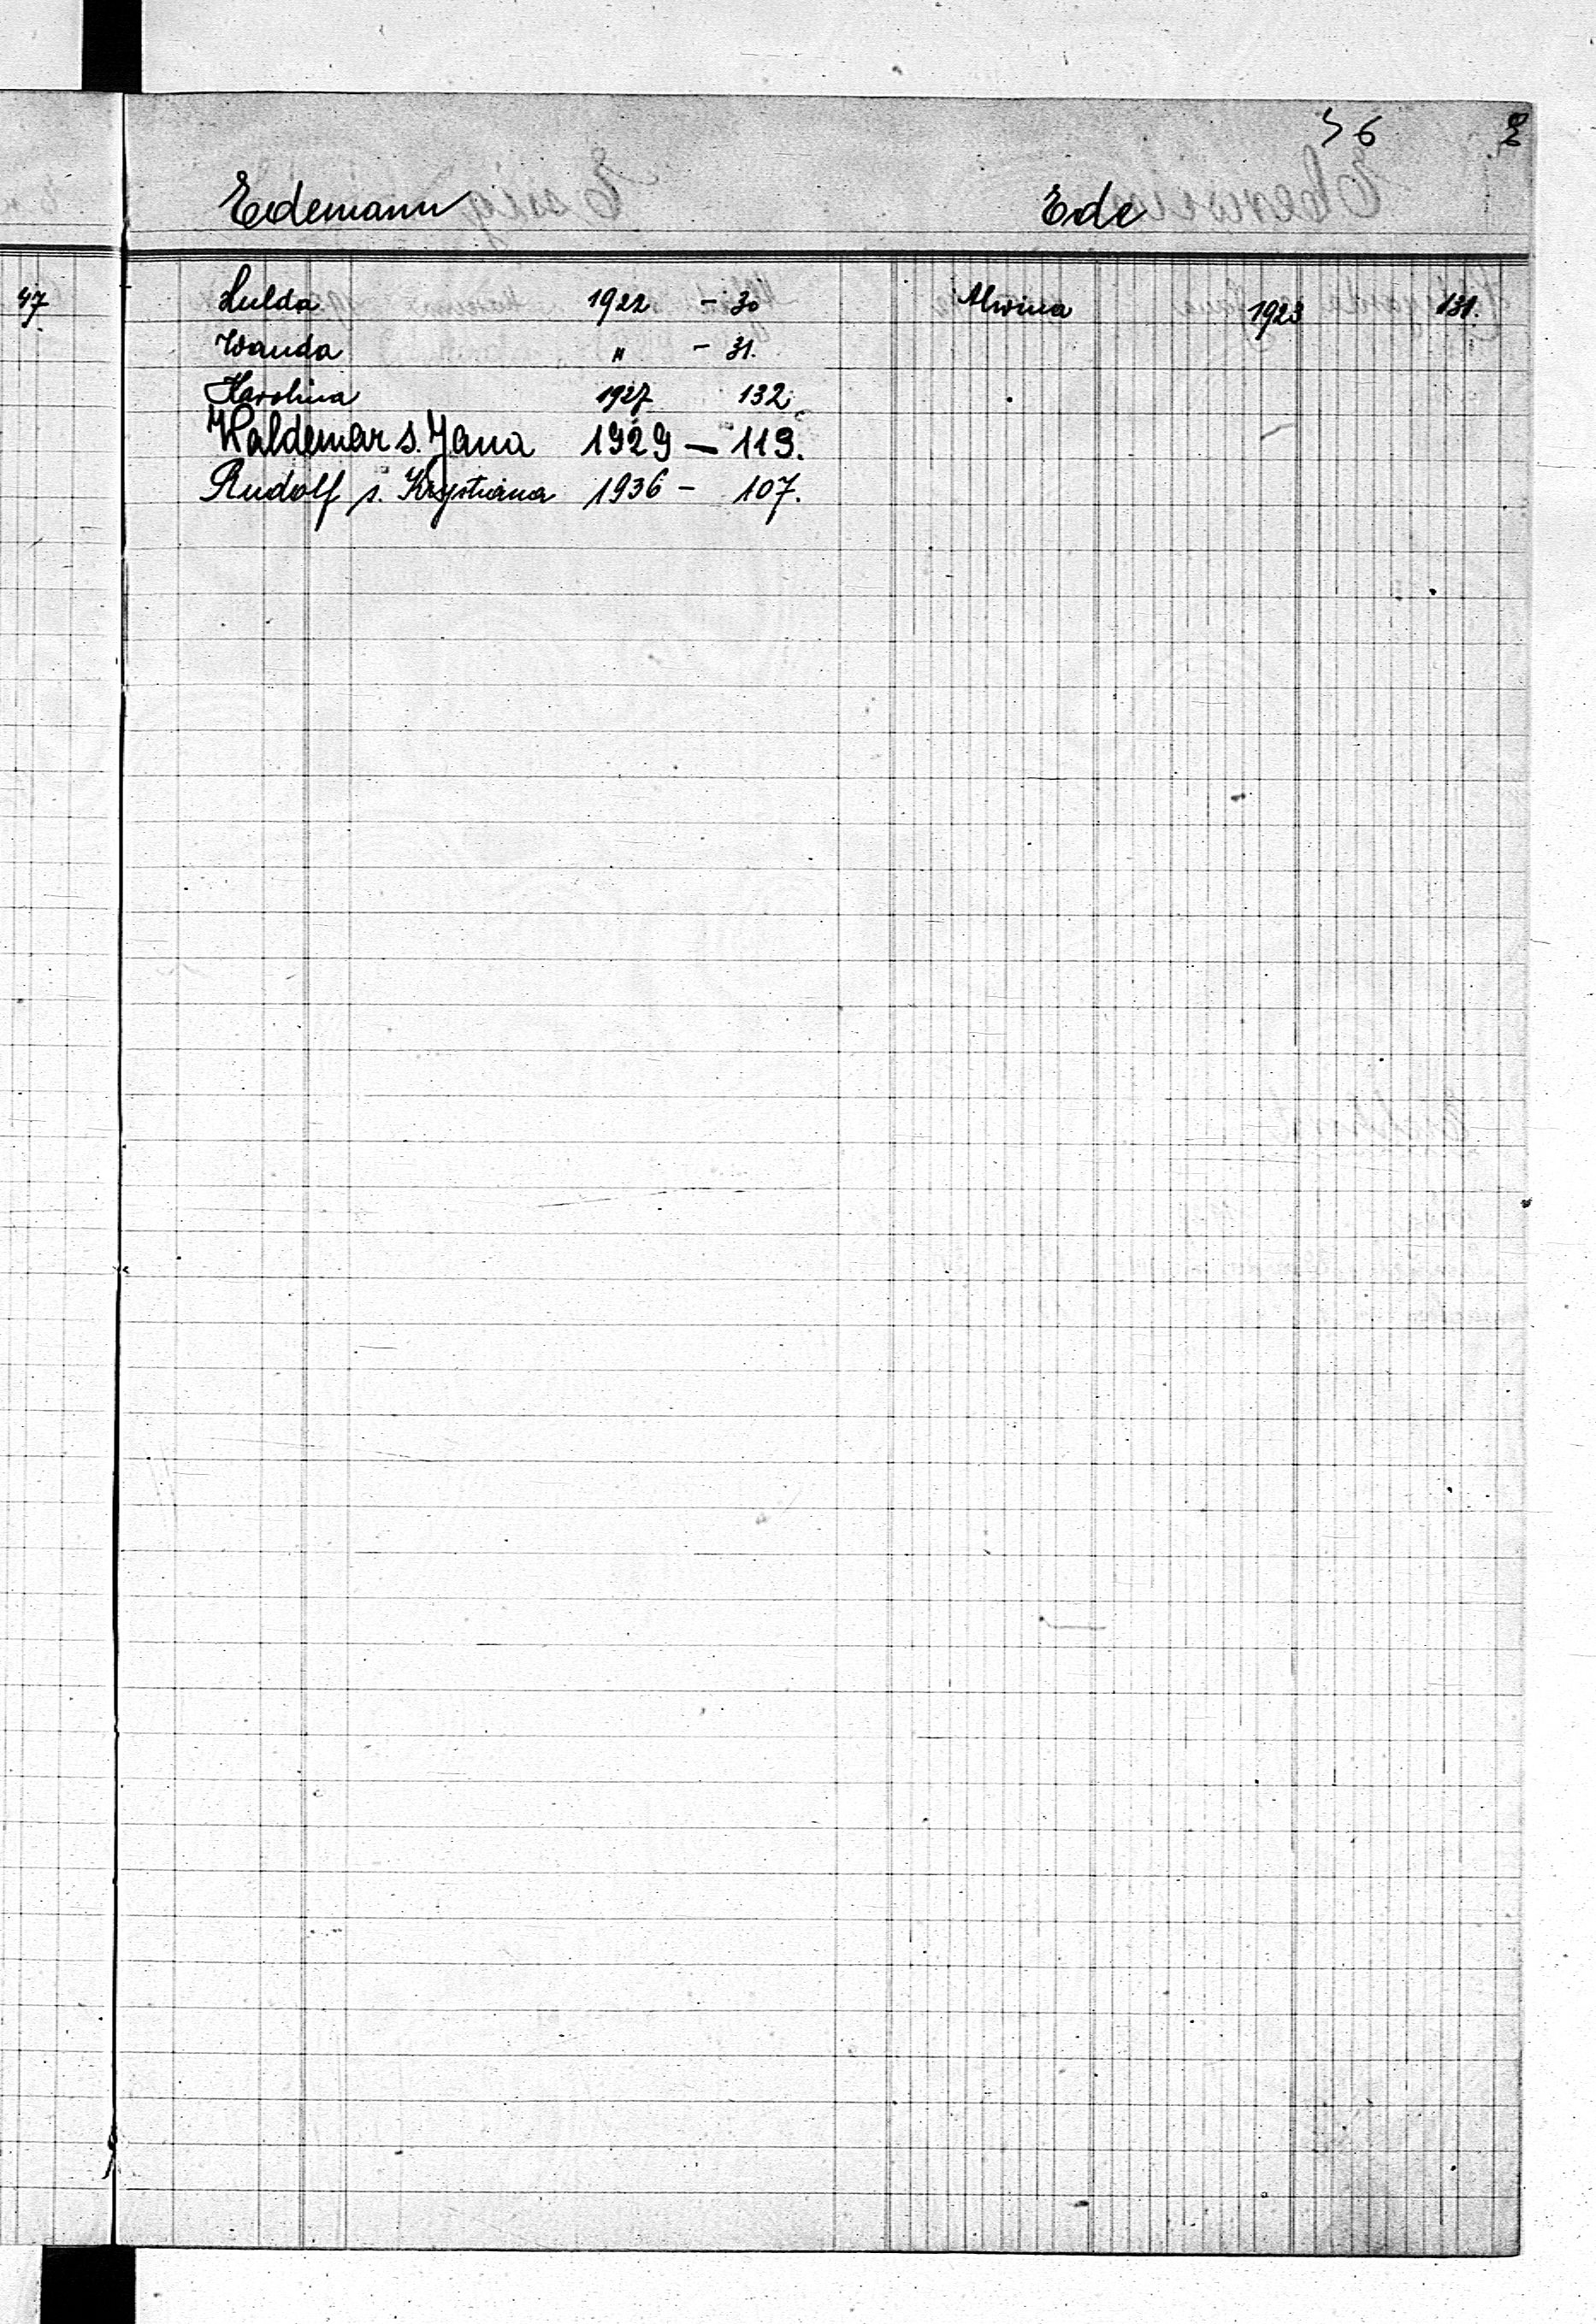 36 E
Erdemann Erde
47
Hulda 1922 - 30 Alwina 1923 131.
Wanda " - 31.
Karolina 1927 132.
Waldemar s. Jana 1929 — 119.
Rudolf s. Krystiana 1936 - 107.